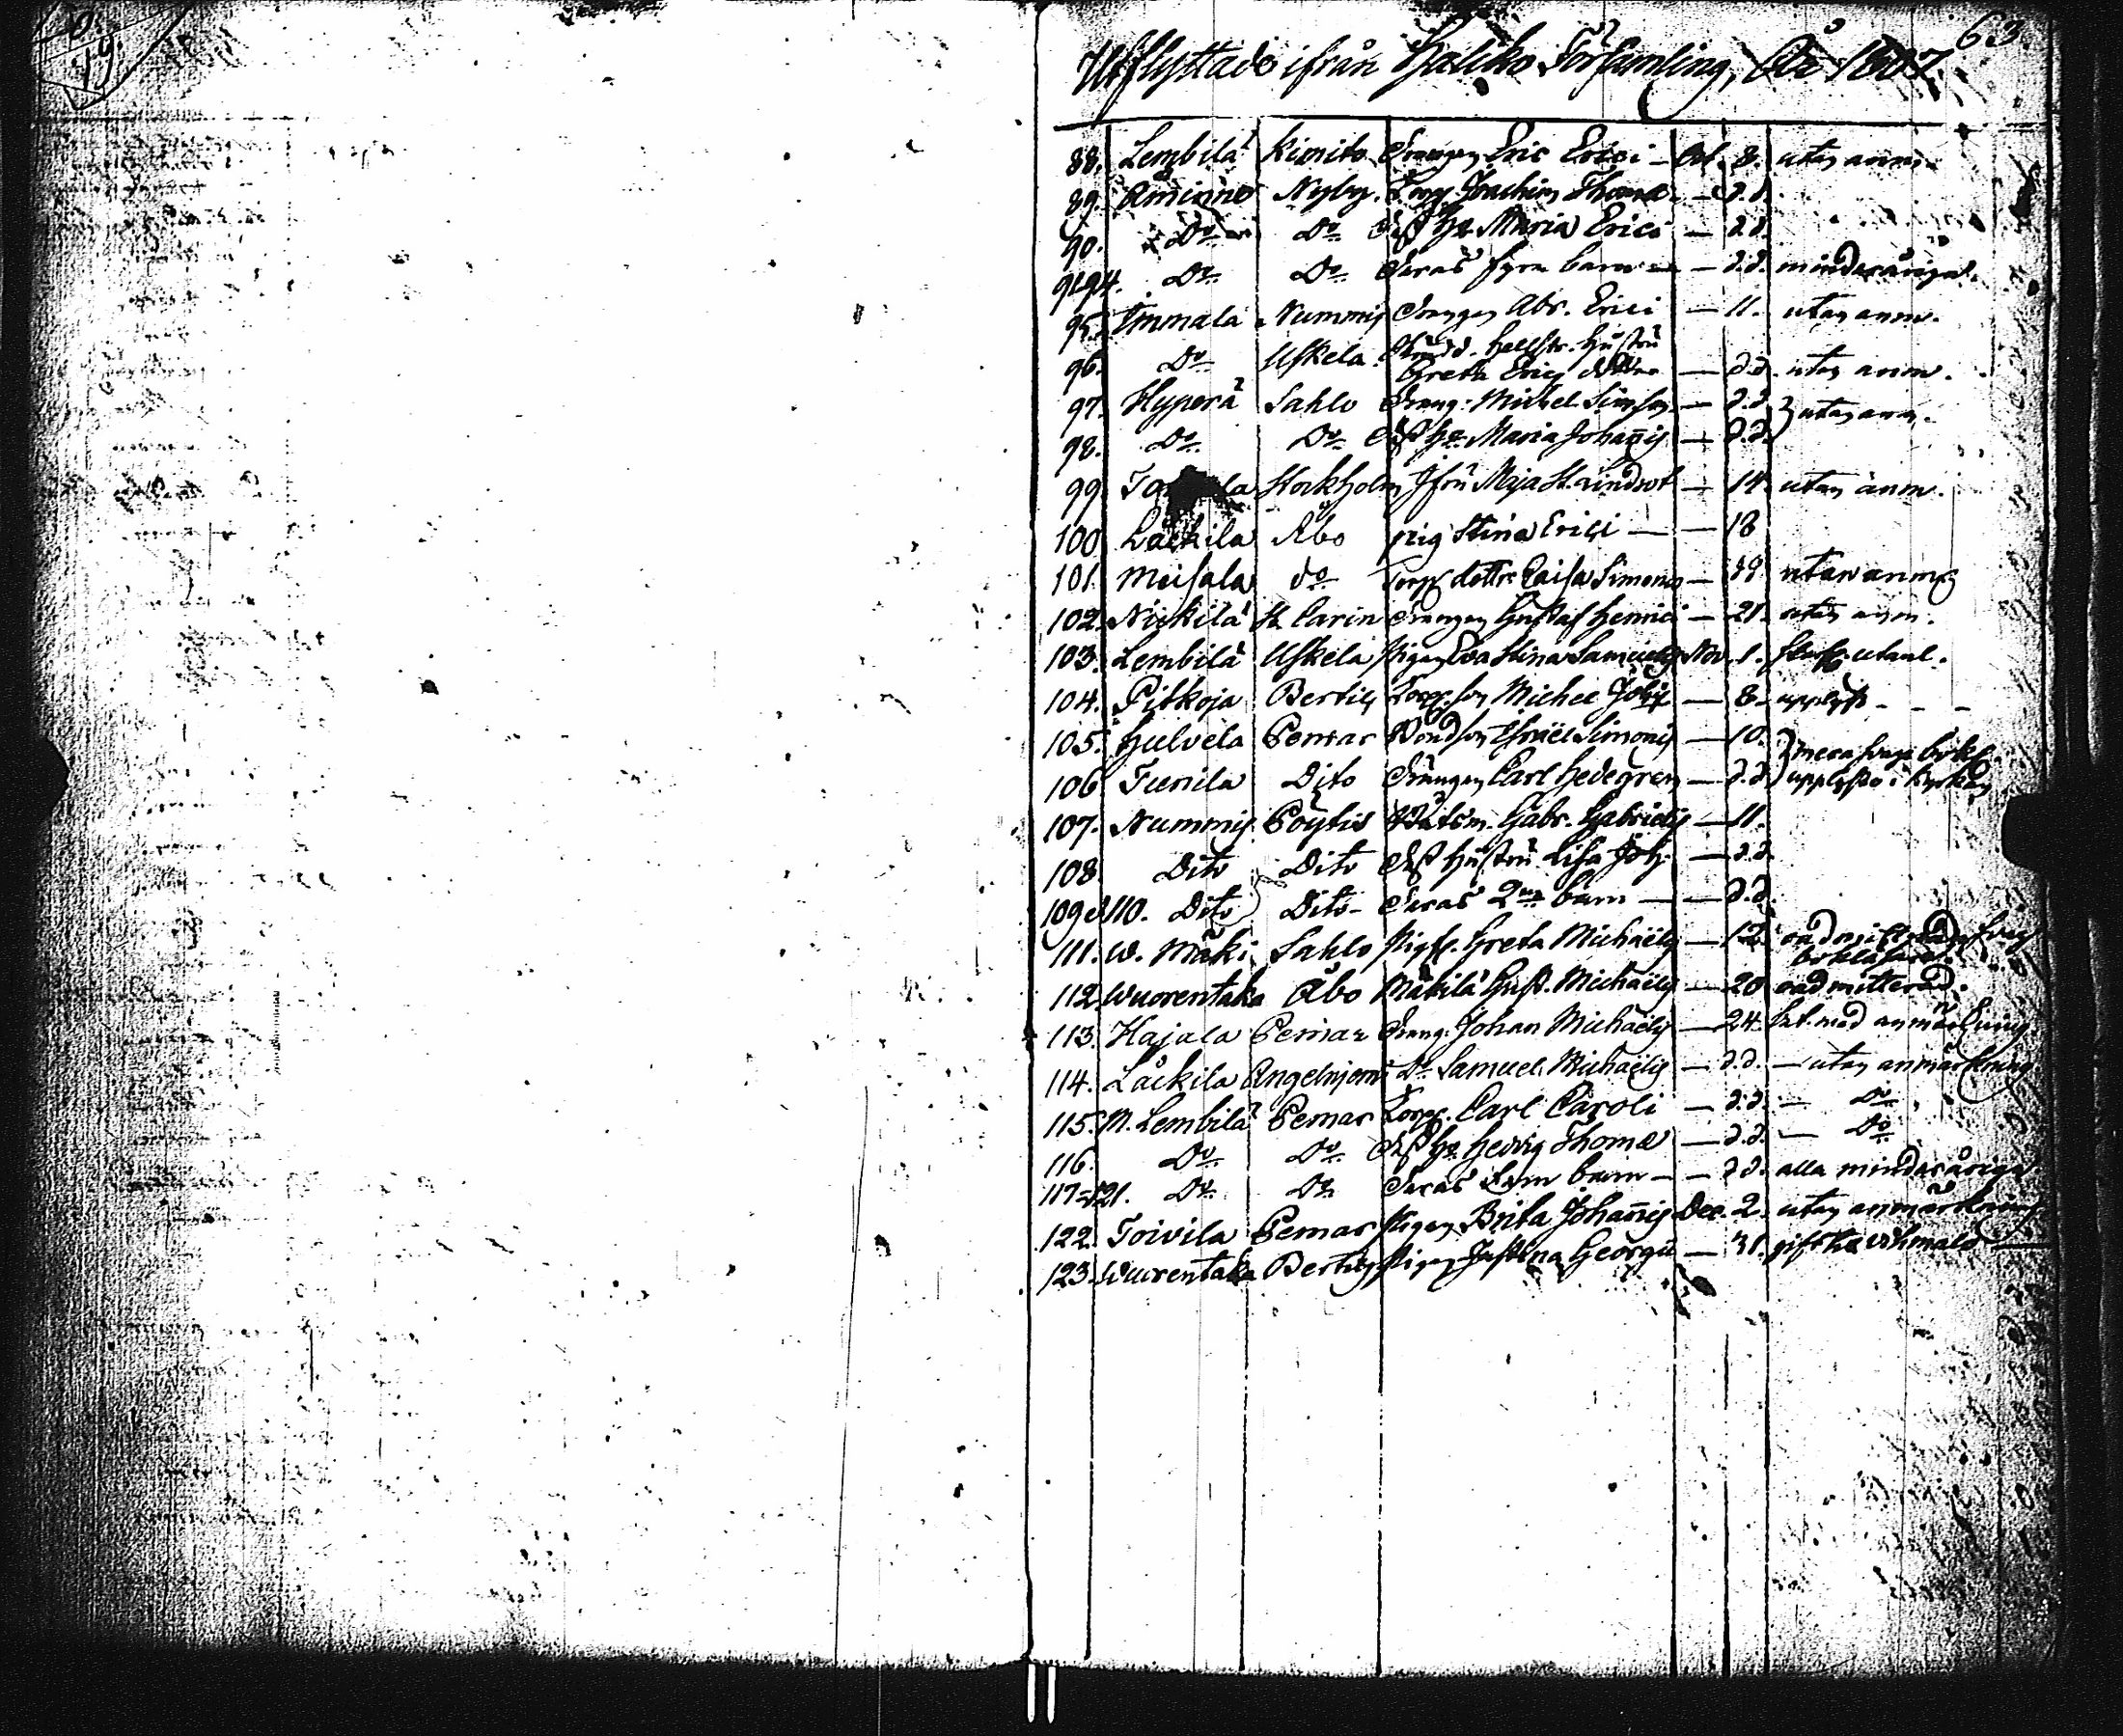 63.
Utflyttade ifrån Haliko Församling, År 1807.
88. Lembilä Kimito Drengen Eric Erici - Oct. 8. utan anm.
89. Åminne Nyby. Torp. Joachim Thomæ - d.d.
90. Do Do Dess Ha Maria Erici - d.d.
91-94. Do Do Deras fyra barn - d.d. minderåriga.
95. Immala Nummis Drengen Abr. Erici - 11. utan anm.
96. Do Uskela. Hellstr. Hustru
Greta Erics dotter - d.d. utan anm.
97. Hyperä Sahlo Dreng. Michel Simons. - d.d. } utan anm.
98. Do Do Dess Ha Maria Johannis - d.d.
99. Stockholm Jfru Maja St. Lindrot - 14. utan anm.
100. Låckila Åbo pig Stina Erici - 18
101. Meisala do Torp dottr. Caisa Simons - 19 utan anmg
102. Nickilä St. Carin Drengen Gustaf Henrici - 21. utan anm.
103. Lembilä Uskela Pigan Eva Stina Samuelis Nov. 1.
104. Pitkoja Bertils Torp. son Michel Johs - 8. upplyst - - -
105. Hulvela Pemar Bondson Israel Simonis - 10.
106. Tunila Dito Drängen Carl Hedegren - d.d. } upplyste i kyrkan
107. Nummis Pöytis Båtsm. Gabr. Gabrielis - 11.
108. Dito Dito Dess hustru Lisa Joh. - d.d.
109 et 110. Dito Dito - Deras 2ne barn - d.d.
111. W. Mäki Sahlo Pig. Greta Michaëlis - 12.
112. Wuorentaka Åbo Mäkilä Gust. Michaëlis - 20 oadmitterad.
113. Hajala Pemar Dreng. Johan Michaëlis - 24. med anmärkning.
114. Låckila Angelnjemi Do Samuel Michaëlis - d.d. - utan anmärkning
115. M. Lembilä Pemar Torp. Carl Caroli - d.d. - Do
116. Do Do Dess Ha Hedvig Thomæ - d.d. - Do
117=121. Do Do Deras fem barn - d.d. alla minderåriga
122. Toivila Pemar Pigan Brita Johannis Dec. 2. utan anmärkning
123. Wuorentaka Bertils Pigan Justina Georgii - 31.